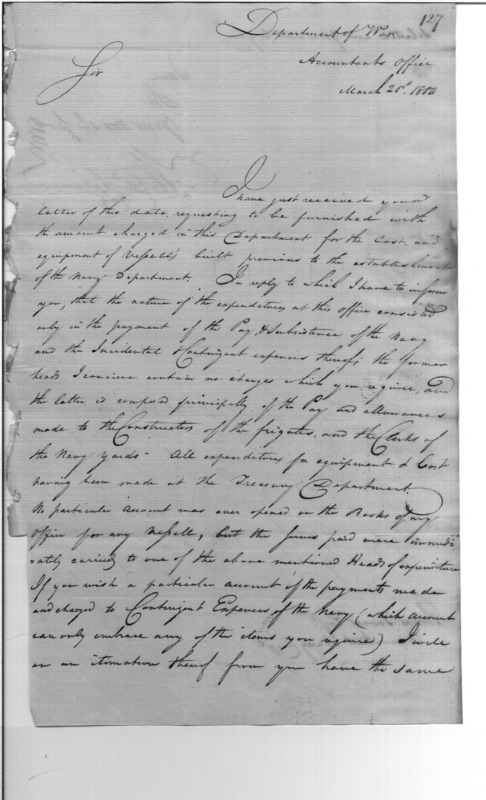 127
Department of War
Accountants Office
March 25th 1802
Sir
I have just received your
letter of this date, requesting to be furnished with
the amount charged in this Department for the Cost, and
equipment of Vessells built previous to the establishment
of the Navy Department. In reply to which I have to inform
you, that the nature of the expenditures at this office consisted
only in the payment of the Pay & Subsistence of the Navy
and the Incidental & Contingent expences thereof; the former
heads I conceive contain no charges which you require, and
the latter is composed principally of the Pay and allowances
made to the Constructors of the frigates, and the Clerks of
the Navy yards - All expenditures for equipment & Cost
having been made at the Treasury Department.
No particular account was ever opened on the Books of my
office for any Vessell, but the sums paid were immedi
=ately carried to one of the above mentioned Heads of expenditure
If you wish a particular account of the payments made
and charged to Contingent Expences of the Navy (which account
can only embrace any of the items you require) I will
on an intimation thereof from you have the same